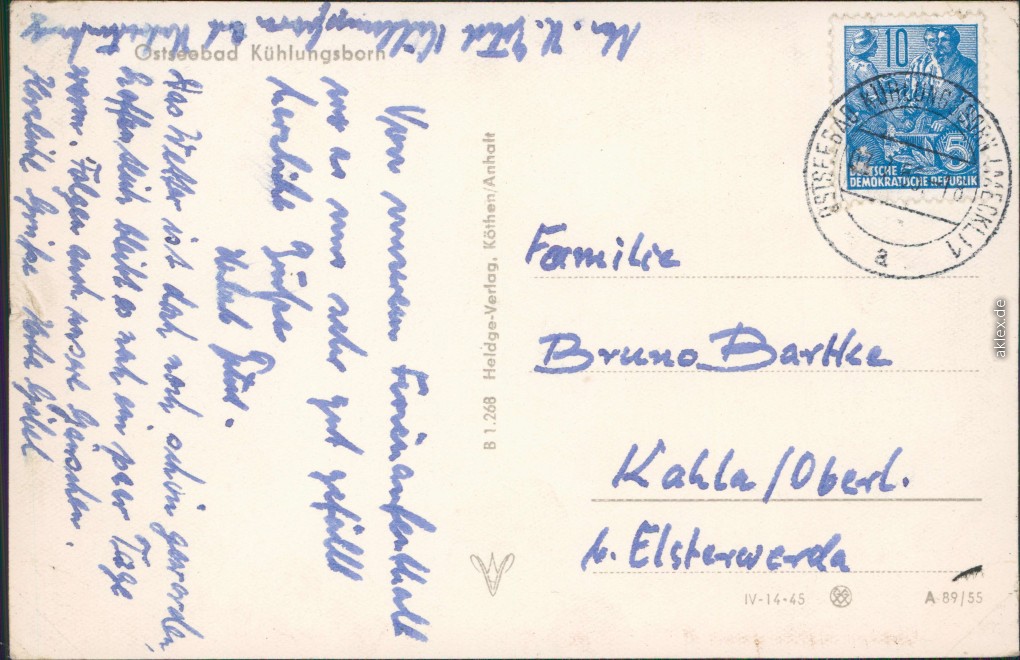 Ostseebad Kühlungsborn
Von unserem Ferienaufenthalt
wo es uns sehr gut gefällt
herzliche Grüße
Das Wetter ist doch noch schön geworden,
hoffentlich bleibt es noch ein paar Tage
warm. Folgen auch unsere
Herzliche Grüße
B 1.268 Heldge-Verlag, Köthen/Anhalt
10
5
DEUTSCHE
DEMOKRATISCHE REPUBLIK
OSTSEEBAD KÜHLUNGSBORN (MECKL) 1
a
Familie
Bruno Bartke
Kahla/Oberl.
b. Elsterwerda
IV-14-45
A 89/55
aklex.de